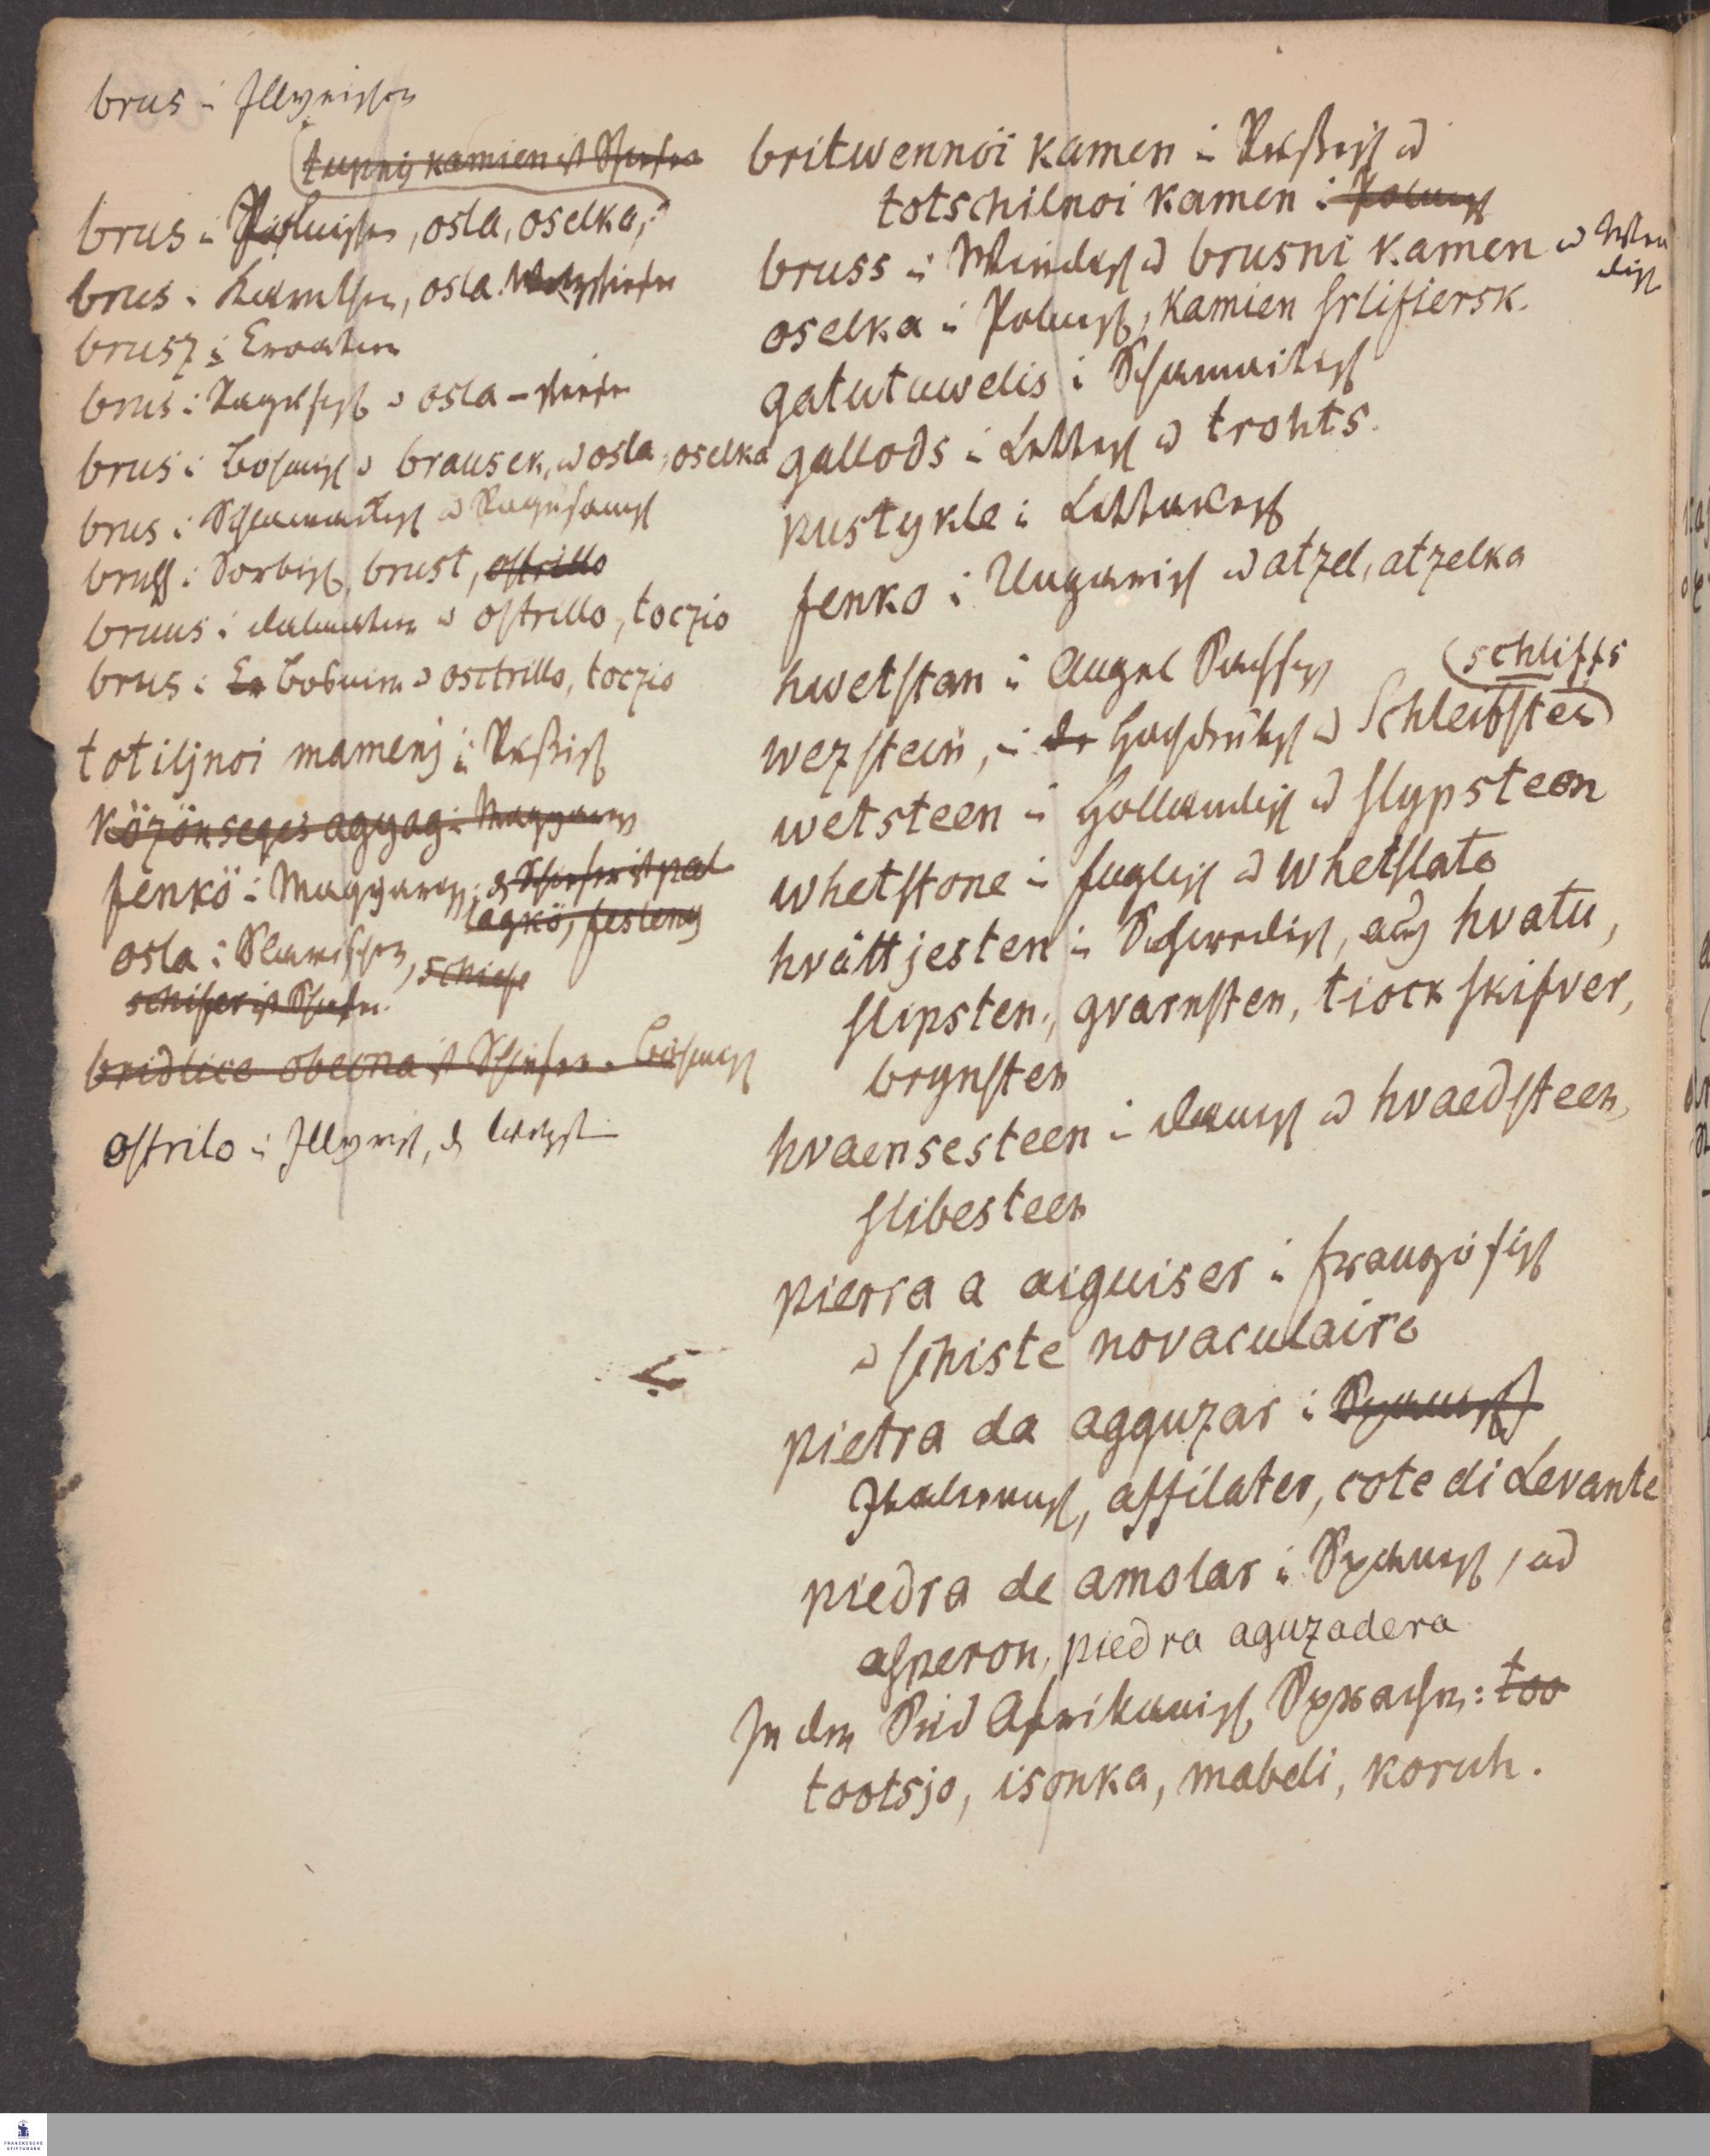 brus i Illyrischen
tupnij kamien ist Schiefer
brus i Pohlnischen, osla, oselka,
brus i Krainischen, osla Wetzschiefer
brusz i Croatien
brus i Ragusisch u osla – schiefer
brus i Bosnisch u brausek, u osla, oselka
brus i Schlawackisch u Ragusanisch
bruss i Sorbisch, brust, ostrillo
bruus i dalmatien u ostrillo, toczio
brus i Bosnien u osctrillo, toczio
totiljnoi mamenj i Rußisch
közönseges agyag i Magyarisch
fenkö i Magyarisch, d Schiefer ist pal
lagkö, fesleng
osla i Slawischen, schiefe
schifer ist Schiefer
bridlice obecna ist Schiefer Bösmisch
ostrilo i Illyrisch, d Wetzst
britwennoi kamen i Rußisch u
totschilnoi kamen i Polnisch
bruss i Windisch u brusni kamen u Wen
disch
oselka i Polnisch, kamien srlifiersk.
gatutuwelis i Schamaitisch
gallods i Lettisch u trohts.
pustykle i Litthauisch
fenko i Ungarisch u atzel, atzelka
hwetstan i Angel Sachsisch
(schliffs
wezstein, i Hochdeutsch u Schleibstein)
wetsteen i Hollandisch u slypsteen
whetstone i Englisch u whetslate
hvättjesten i Schwedisch, auch hvatu,
slipsten, qvarnsten, tiock skifver,
brynsten
hvaensesteen i danisch u hvaedsteen,
slibesteen
pierra a aiguiser i französisch
u schiste novaculaire
pietra da agguzar i Spanisch
Italienisch, affilater, cote di Levante
piedra de amolar i Spanisch, u
asperon, piedra aguzadera
In den Süd Afrikanisch Sprachen: too
tootsjo, isonka, mabeli, koruh.
FRANCKESCHE
STIFTUNGEN